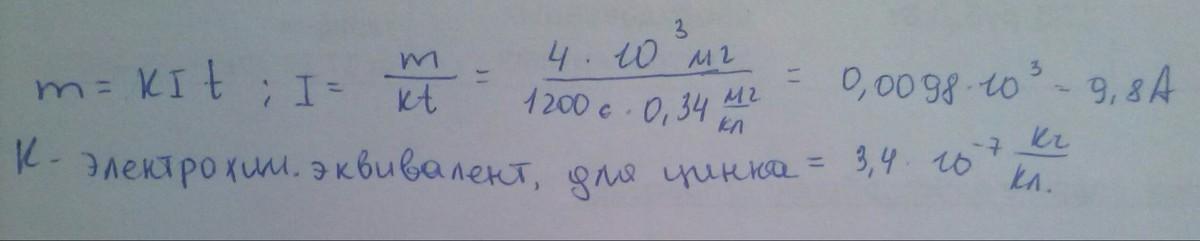 m = KIt ; I = m/kt = 4 · 10³ мг / 1200 с · 0,34 мг/кл = 0,0098 · 10³ - 9,8 А
К - электрохим. эквивалент, для цинка = 3,4 · 10⁻⁷ кг/кл.